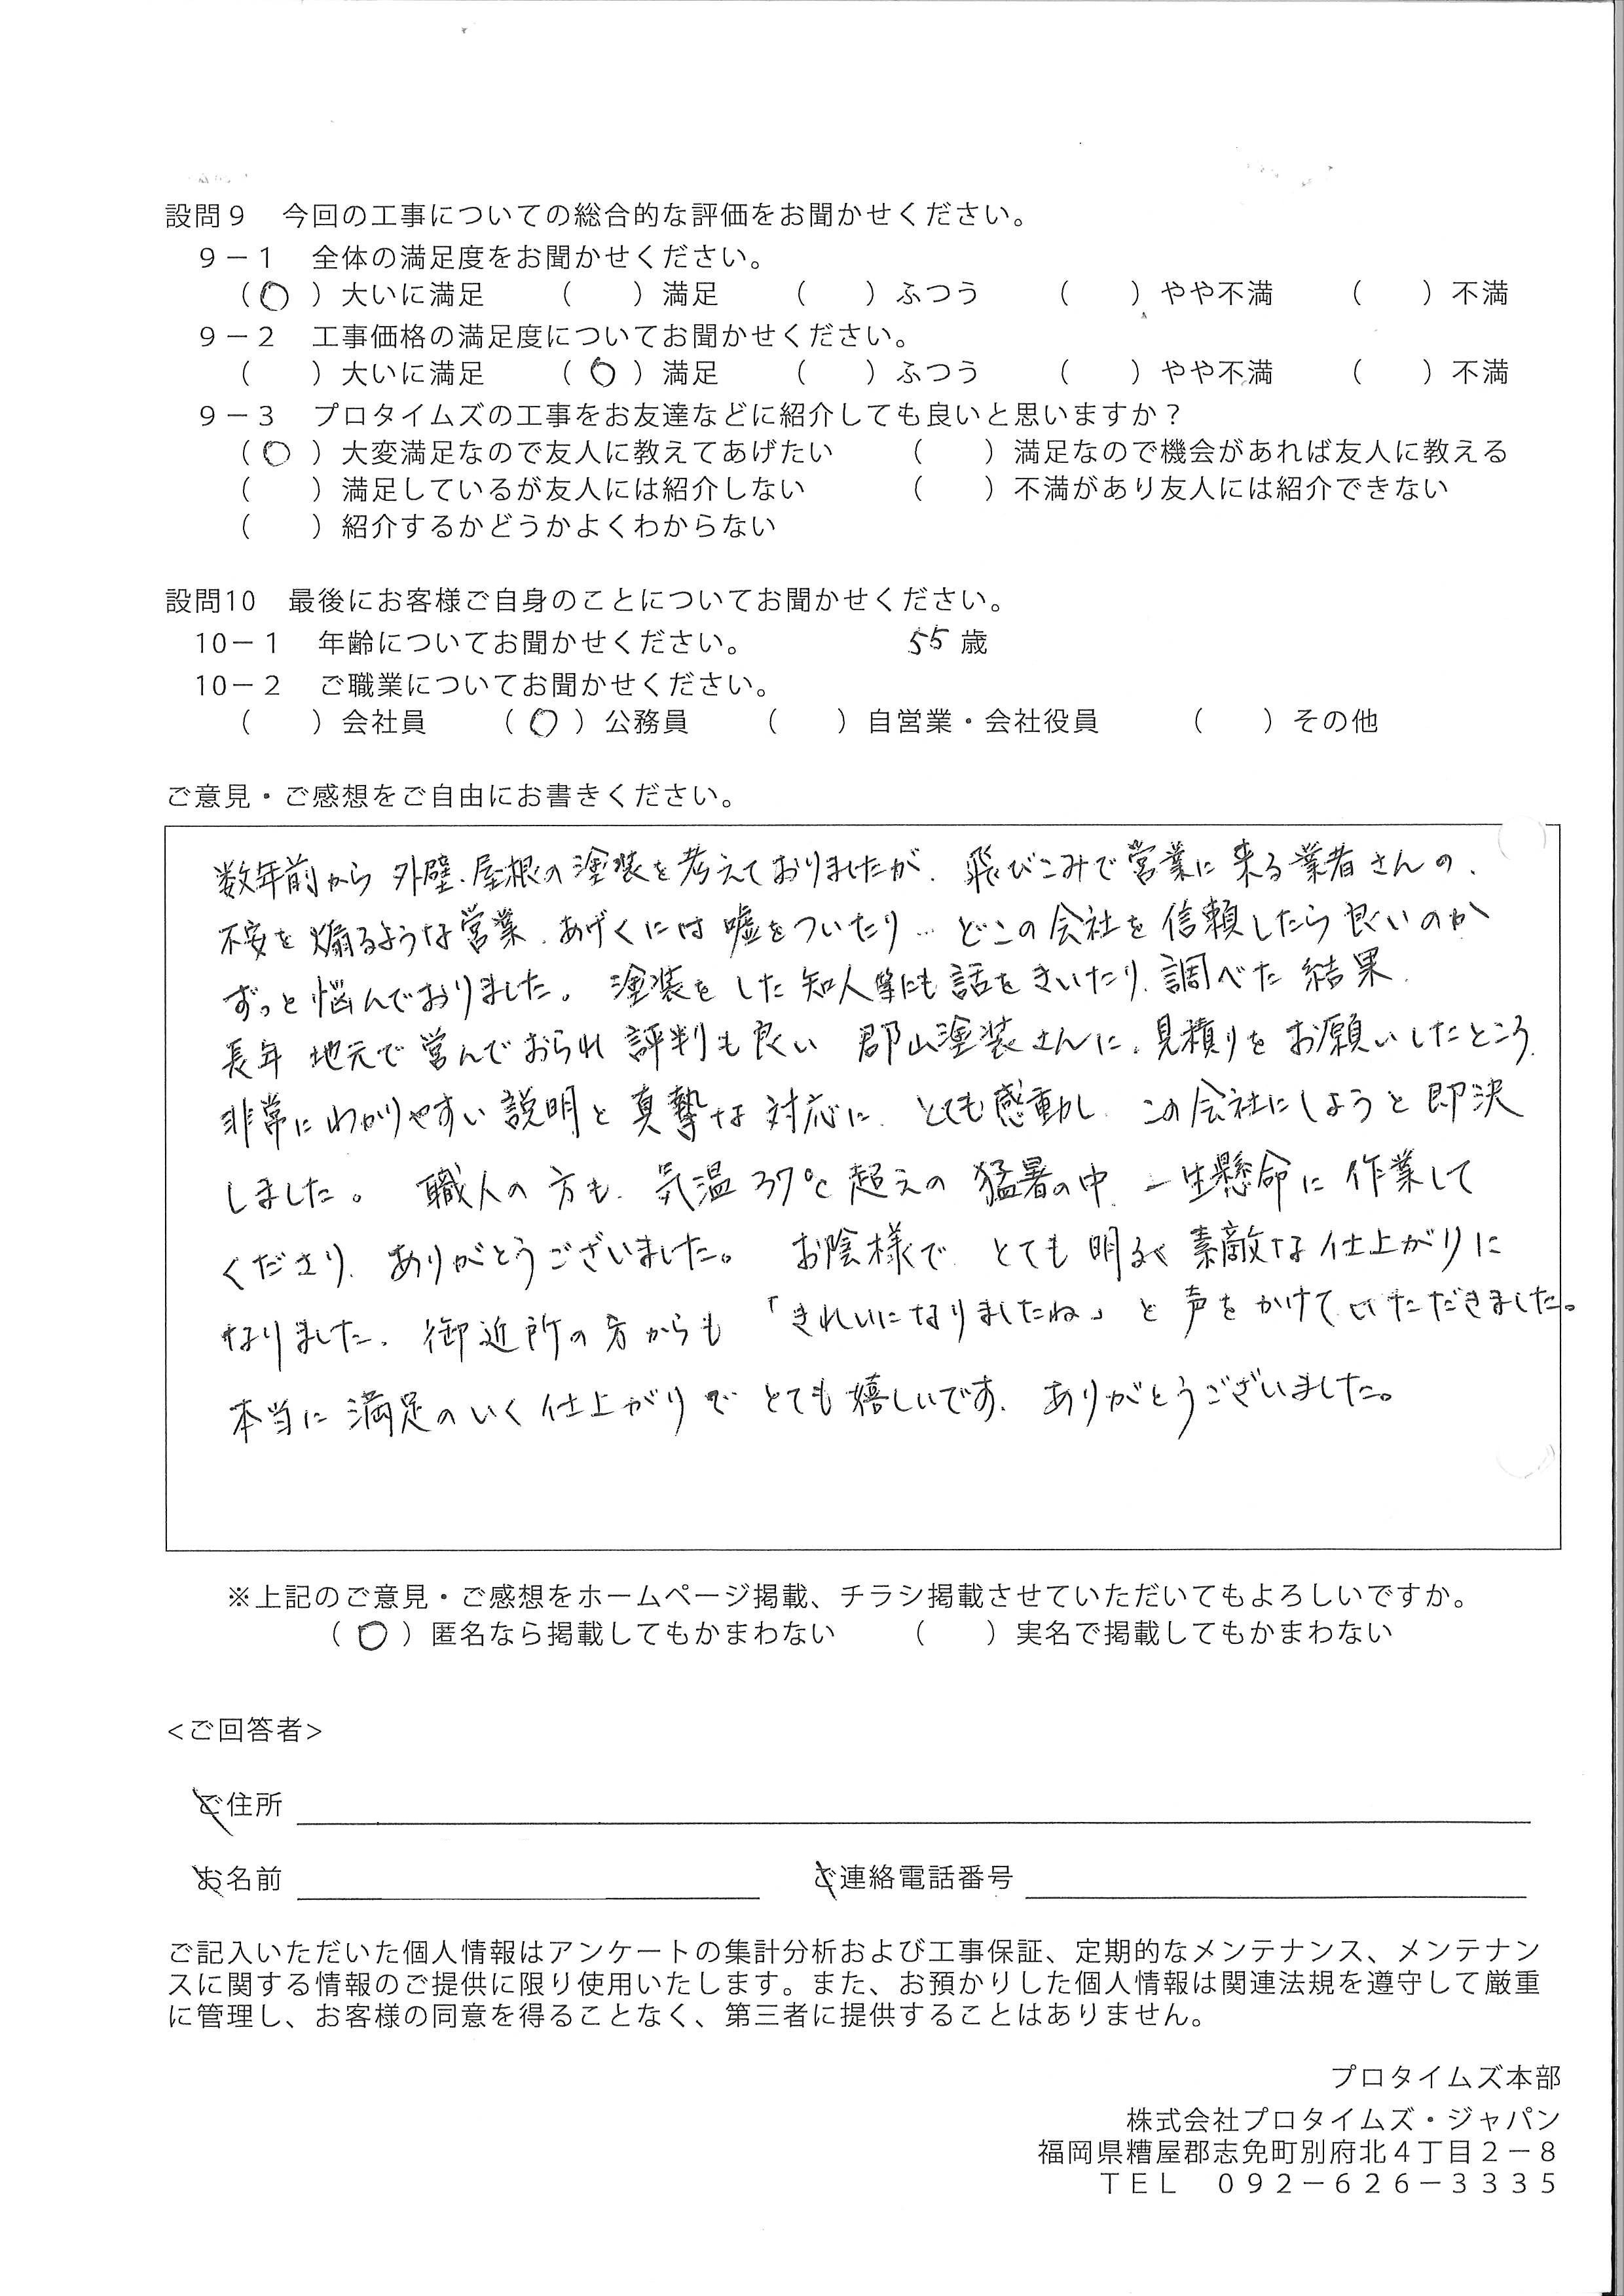 設問９　今回の工事についての総合的な評価をお聞かせください。
９－１　全体の満足度をお聞かせください。
（○）大いに満足　（　）満足　（　）ふつう　（　）やや不満　（　）不満
９－２　工事価格の満足度についてお聞かせください。
（　）大いに満足　（○）満足　（　）ふつう　（　）やや不満　（　）不満
９－３　プロタイムズの工事をお友達などに紹介しても良いと思いますか？
（○）大変満足なので友人に教えてあげたい　（　）満足なので機会があれば友人に教える
（　）満足しているが友人には紹介しない　（　）不満があり友人には紹介できない
（　）紹介するかどうかよくわからない
設問10　最後にお客様ご自身のことについてお聞かせください。
10－１　年齢についてお聞かせください。　55歳
10－２　ご職業についてお聞かせください。
（　）会社員　（○）公務員　（　）自営業・会社役員　（　）その他
ご意見・ご感想をご自由にお書きください。
数年前から外壁、屋根の塗装を考えておりましたが、飛びこみで営業に来る業者さんの、
不安を煽るような営業、あげくには嘘をついたり…どこの会社を信頼したら良いのか
ずっと悩んでおりました。塗装をした知人等にも話をきいたり、調べた結果、
長年地元で営んでおられ評判も良い郡山塗装さんに、見積りをお願いしたところ、
非常にわかりやすい説明と真摯な対応に、とても感動し、この会社にしようと即決
しました。職人の方も、気温37℃超えの猛暑の中、一生懸命に作業して
くださり、ありがとうございました。お陰様で、とても明るく素敵な仕上がりに
なりました。御近所の方からも「きれいになりましたね」と声をかけていただきました。
本当に満足のいく仕上がりでとても嬉しいです。ありがとうございました。
※上記のご意見・ご感想をホームページ掲載、チラシ掲載させていただいてもよろしいですか。
（○）匿名なら掲載してもかまわない　（　）実名で掲載してもかまわない
<ご回答者>
ご住所
お名前　ご連絡電話番号
ご記入いただいた個人情報はアンケートの集計分析および工事保証、定期的なメンテナンス、メンテナン
スに関する情報のご提供に限り使用いたします。また、お預かりした個人情報は関連法規を遵守して厳重
に管理し、お客様の同意を得ることなく、第三者に提供することはありません。
プロタイムズ本部
株式会社プロタイムズ・ジャパン
福岡県糟屋郡志免町別府北４丁目２－８
ＴＥＬ　０９２－６２６－３３３５